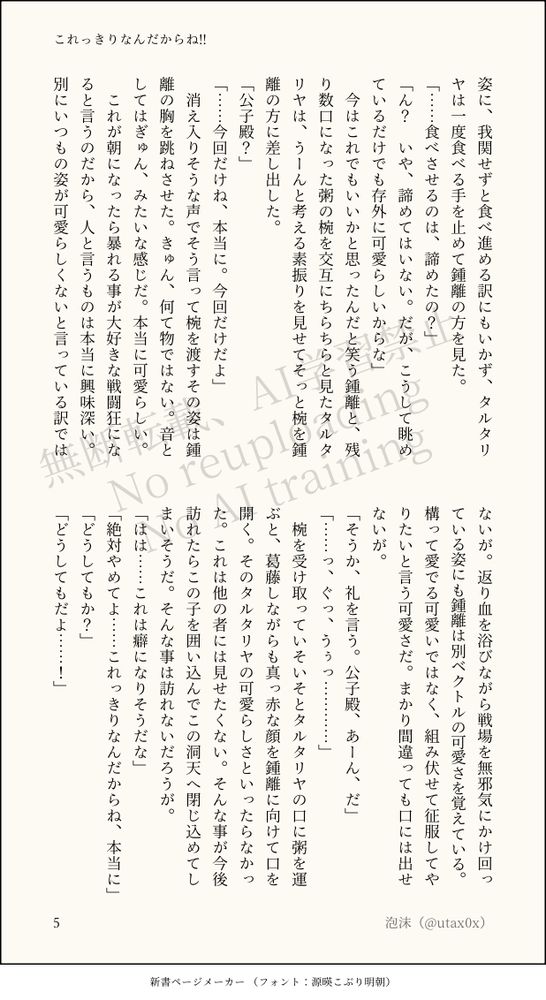 これっきりなんだからね!!
姿に、我関せずと食べ進める訳にもいかず、タルタリ
ヤは一度食べる手を止めて鍾離の方を見た。
「……食べさせるのは、諦めたの?」
「ん? いや、諦めてはいない。だが、こうして眺め
ているだけでも存外に可愛らしいからな」
今はこれでもいいかと思ったんだと笑う鍾離と、残
り数口になった粥の椀を交互にちらちらと見たタルタ
リヤは、うーんと考える素振りを見せてそっと椀を鍾
離の方に差し出した。
「公子殿?」
「……今回だけね、本当に。今回だけだよ」
消え入りそうな声でそう言って椀を渡すその姿は鍾
離の胸を跳ねさせた。きゅん、何て物ではない。音と
してはぎゅん、みたいな感じだ。本当に可愛らしい。
これが朝になったら暴れる事が大好きな戦闘狂にな
ると言うのだから、人と言うものは本当に興味深い。
別にいつもの姿が可愛らしくないと言っている訳では
ないが。返り血を浴びながら戦場を無邪気にかけ回っ
ている姿にも鍾離は別ベクトルの可愛さを覚えている。
構って愛でる可愛いではなく、組み伏せて征服してや
りたいと言う可愛さだ。まかり間違っても口には出せ
ないが。
「そうか、礼を言う。公子殿、あーん、だ」
「……っ、ぐっ、うぅっ…………」
椀を受け取っていそいそとタルタリヤの口に粥を運
ぶと、葛藤しながらも真っ赤な顔を鍾離に向けて口を
開く。そのタルタリヤの可愛らしさといったらなかっ
た。これは他の者には見せたくない。そんな事が今後
訪れたらこの子を囲い込んでこの洞天へ閉じ込めてし
まいそうだ。そんな事は訪れないだろうが。
「はは……これは癖になりそうだな」
「絶対やめてよ……これっきりなんだからね、本当に」
「どうしてもか?」
「どうしてもだよ……!」
無断転載、AI学習禁止
No reuploading
No AI training
5
泡沫（@utax0x）
新書ページメーカー（フォント：源暎こぶり明朝）